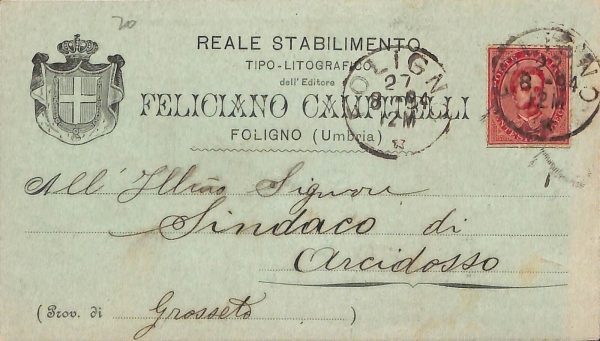 20
REALE STABILIMENTO
TIPO-LITOGRAFICO
dell'Editore
FELICIANO CAMPITELLI
FOLIGNO (Umbria)
FOLIGNO
27
8-94
12M
FOLIGNO
27
8-94
12M
All' Illmo Signore
Sindaco di
Arcidosso
(Prov. di Grosseto )